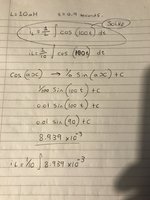 L=10mH t=0.9 seconds.
Solve
iL = 1/L ∫ cos (100t) dt
iL = 1/10 ∫ cos (100t) dt
cos (ax) → 1/a Sin (ax) + C
1/100 Sin (100t) + C
0.01 Sin (100t) + C
0.01 Sin (90) + C
8.939 x10⁻³
iL = 1/10 ∫ 8.939 x10⁻³